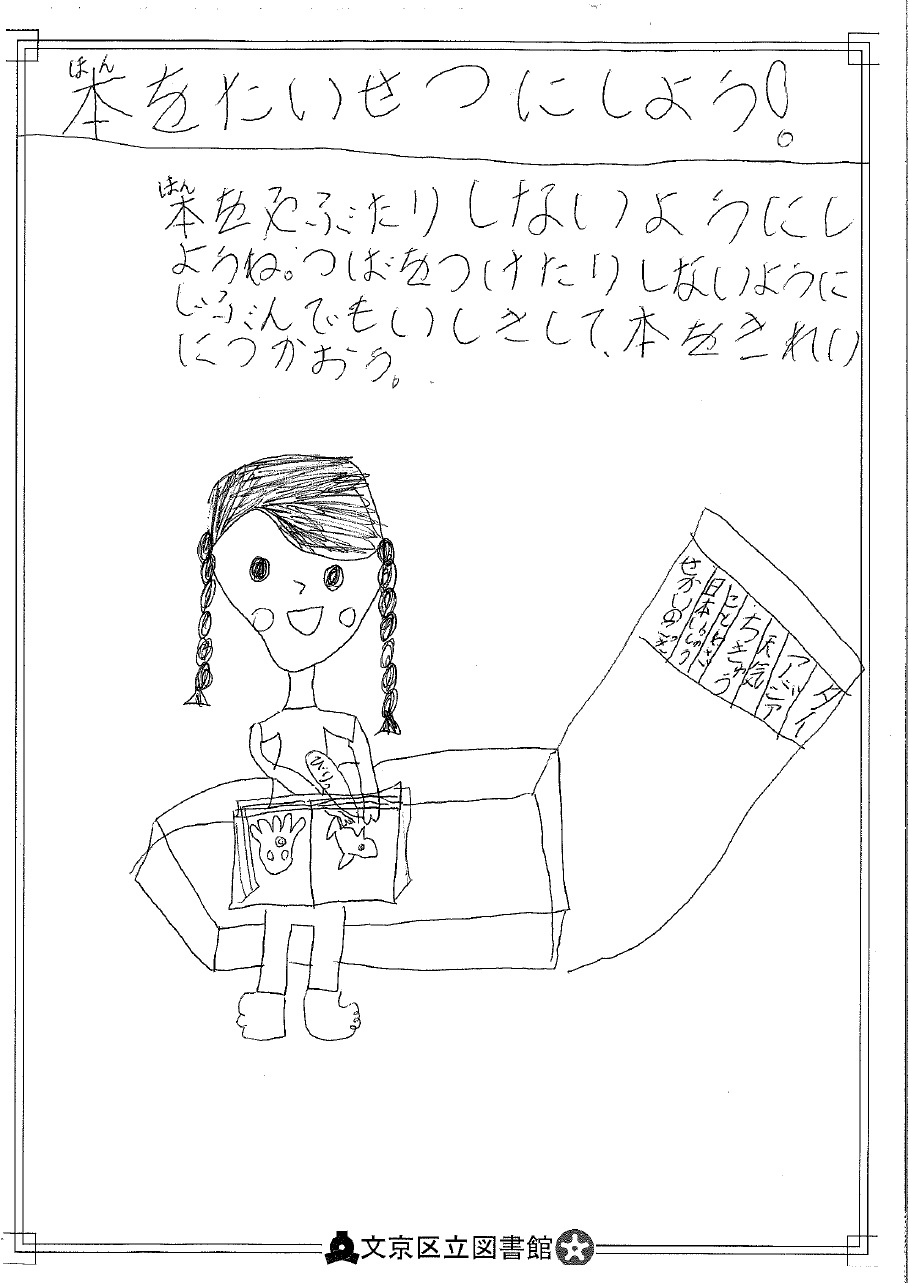 本をたいせつにしよう!
はん
本をやぶたりしないようにし
はん
ようね。つばをつけたりしないように
じぶんでもいしきして、本をきれい
につかおう。
びりっ
タイ
アジア
天気
ちきゅう
ことわざ
日本しょり
せかいの
文京区立図書館